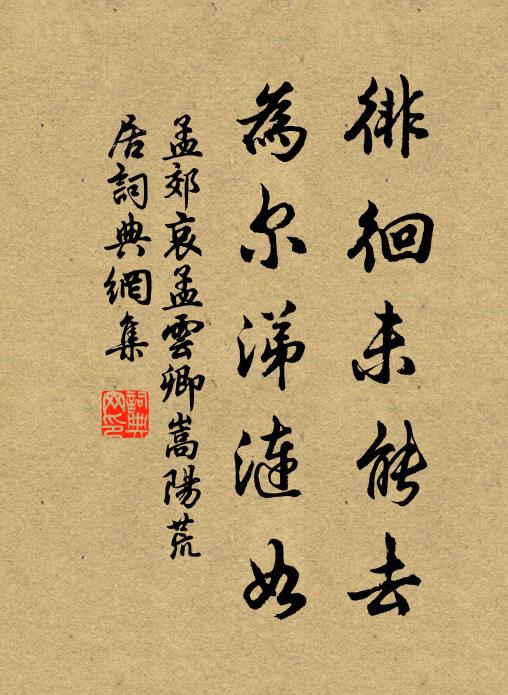 徘徊未能去
為尔涕漣如
孟郊哀孟雲卿嵩陽荒
居詞典網集
詞典
网印